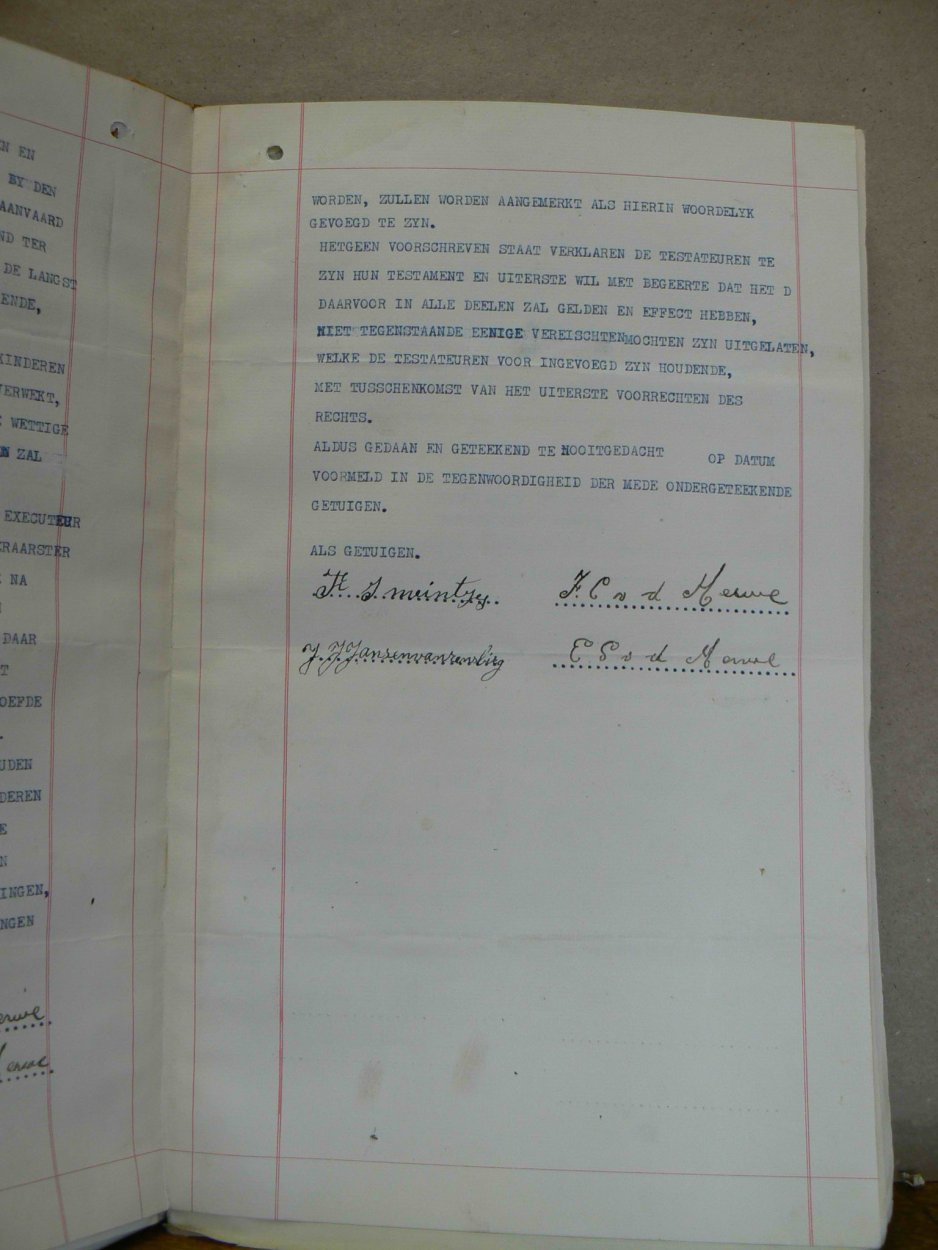 N EN
BY DEN
AANVAARD
ND TER
DE LANGST
ENDE,
KINDEREN
VERWEKT,
WETTIGE
ZAL
EXECUTEUR
ERAARSTER
NA
DAAR
T
OEFDE
.
UDEN
DEREN
E
N
INGEN,
NGEN
erwe
Merwe
WORDEN, ZULLEN WORDEN AANGEMERKT ALS HIERIN WOORDELYK
GEVOEGD TE ZYN.
HETGEEN VOORSCHREVEN STAAT VERKLAREN DE TESTATEUREN TE
ZYN HUN TESTAMENT EN UITERSTE WIL MET BEGEERTE DAT HET D
DAARVOOR IN ALLE DEELEN ZAL GELDEN EN EFFECT HEBBEN,
NIET TEGENSTAANDE EENIGE VEREISCHTENMOCHTEN ZYN UITGELATEN,
WELKE DE TESTATEUREN VOOR INGEVOEGD ZYN HOUDENDE,
MET TUSSCHENKOMST VAN HET UITERSTE VOORRECHTEN DES
RECHTS.
ALDUS GEDAAN EN GETEEKEND TE NOOITGEDACHT OP DATUM
VOORMELD IN DE TEGENWOORDIGHEID DER MEDE ONDERGETEEKENDE
GETUIGEN.
ALS GETUIGEN.
J. Smeintjy. F. C v d Merwe
J. J Jansenvanrensburg E S v d Merwe